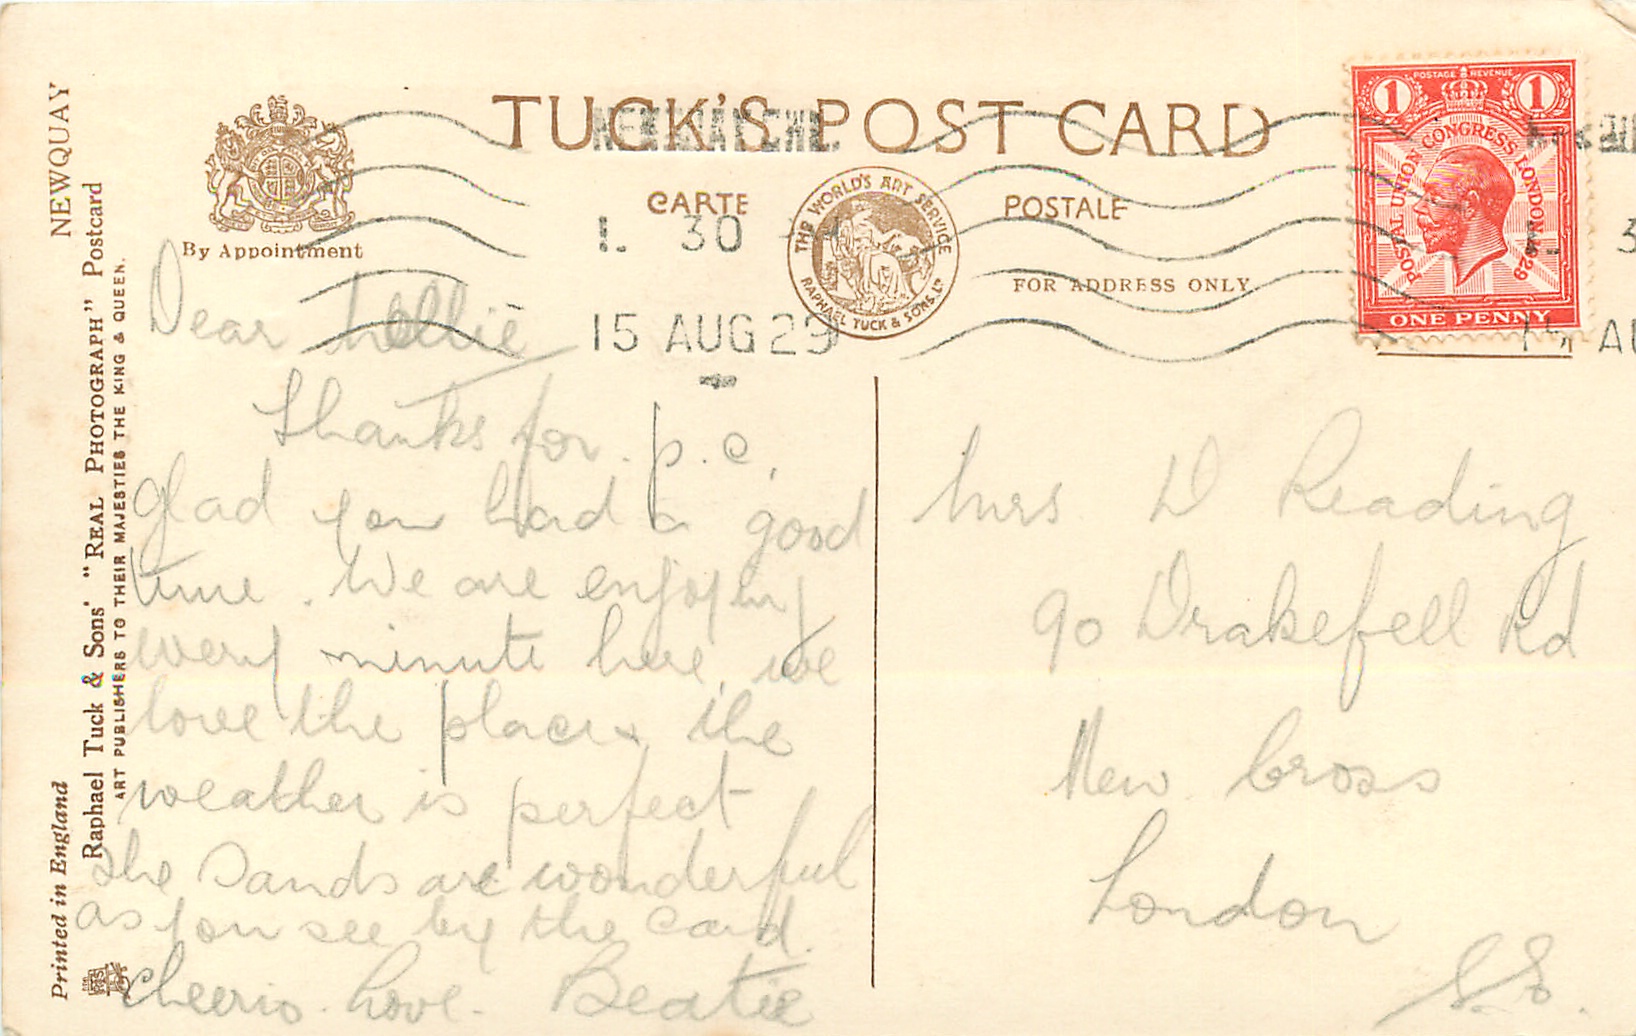 TUCK'S POST CARD
CARTE POSTALE
By Appointment
FOR ADDRESS ONLY
THE WORLD'S ART SERVICE
RAPHAEL TUCK & SONS, LD
POSTAGE REVENUE
1 1
POSTAL UNION CONGRESS LONDON 1929
ONE PENNY
30
15 AUG 29
NEWQUAY
Raphael Tuck & Sons' "REAL PHOTOGRAPH" Postcard
ART PUBLISHERS TO THEIR MAJESTIES THE KING & QUEEN.
Printed in England
Dear Nellie
Thanks for p.c.
glad you had a good
time. We are enjoying
every minute here, we
love the place, the
weather is perfect
the sands are wonderful
as you see by the card.
Cheerio. Love. Beatie
Mrs D Reading
90 Drakefell Rd
New Cross
London
S.E.